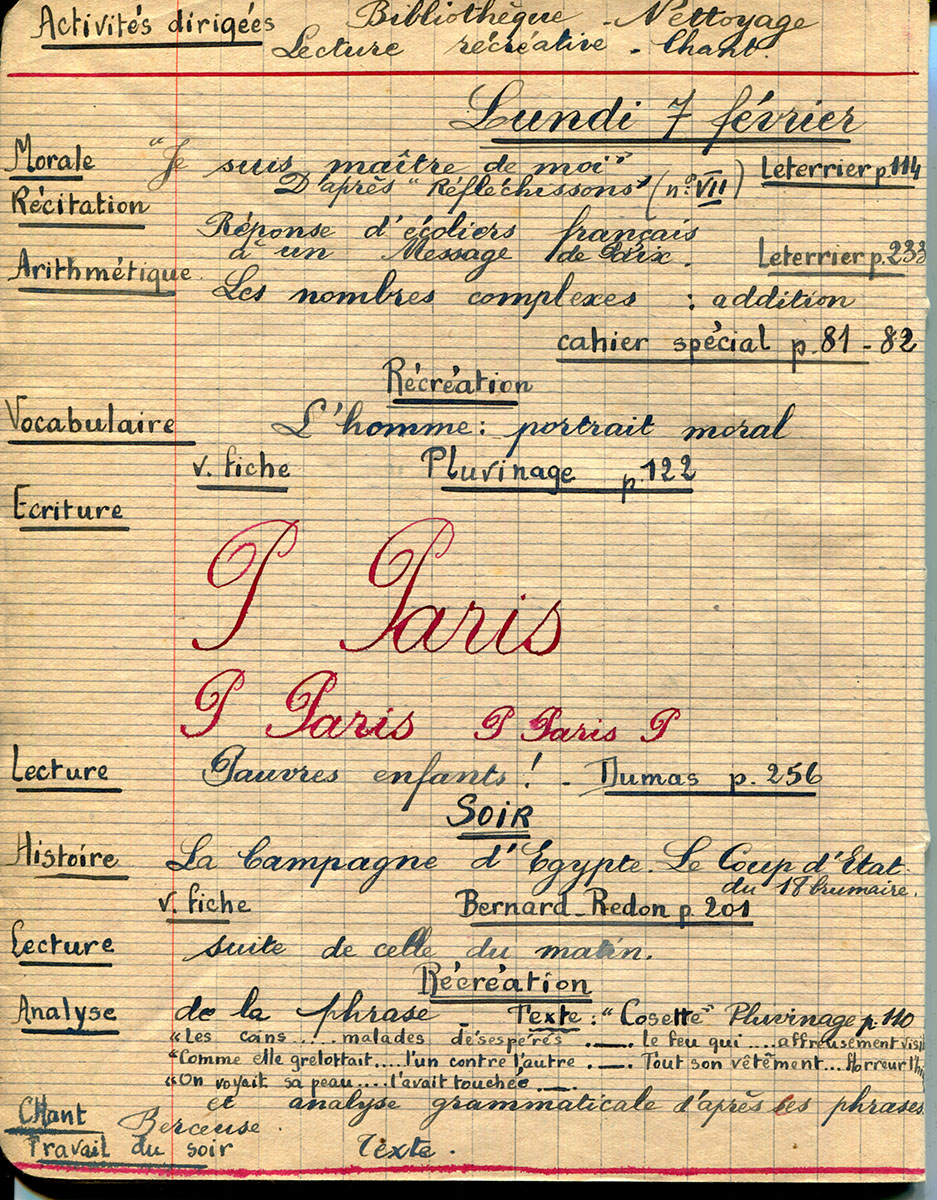 Activités dirigées Bibliothèque - Nettoyage
Lecture récréative - Chant.
Lundi 7 février
Morale "Je suis maître de moi" Leterrier p 114
D'après "Réfléchissons" (n° VII)
Récitation Réponse d'écoliers français
à un Message de Paix. Leterrier p. 233
Arithmétique. Les nombres complexes : addition
cahier spécial p. 81 - 82
Récréation
Vocabulaire L'homme : portrait moral
v. fiche Pluvinage p. 122
Ecriture
P Paris
P Paris P Paris P
Lecture Pauvres enfants ! - Dumas p. 256
SOIR
Histoire La Campagne d'Egypte. Le Coup d'Etat
du 18 brumaire.
v. fiche Bernard-Redon p. 201
Lecture suite de celle du matin.
Récréation
Analyse de la phrase - Texte : "Cosette" Pluvinage p. 110
"Les coins ..... malades désespérés . — . le feu qui .... affreusement visi
"Comme elle grelottait .... l'un contre l'autre . — . Tout son vêtement .... Horreur l'hi
"On voyait sa peau .... l'avait touchée . — .
et analyse grammaticale d'après les phrases
Chant Berceuse.
Travail du soir Texte.